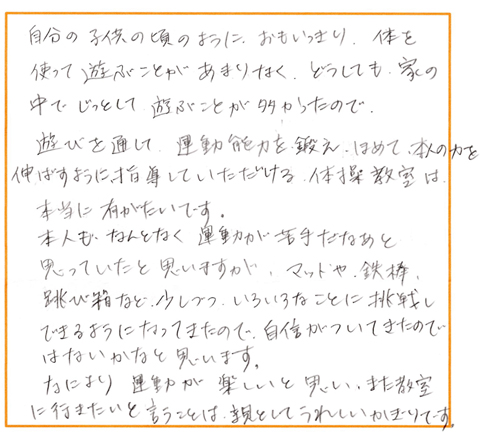 自分の子供の頃のように、おもいっきり、体を
使って遊ぶことがあまりなく、どうしても、家の
中でじっとして遊ぶことが多かったので、
遊びを通して、運動能力を鍛え、ほめて、本人の力を
伸ばすように指導していただける、体操教室は、
本当に有がたいです。
本人も、なんとなく運動が苦手だなあと
思っていたと思いますが、マットや、鉄棒、
跳び箱など、少しづつ、いろいろなことに挑戦し
できるようになってきたので、自信がついてきたので
はないかなと思います。
なにより運動が楽しいと思い、また教室
に行きたいと言うことは、親としてうれしいかぎりです。